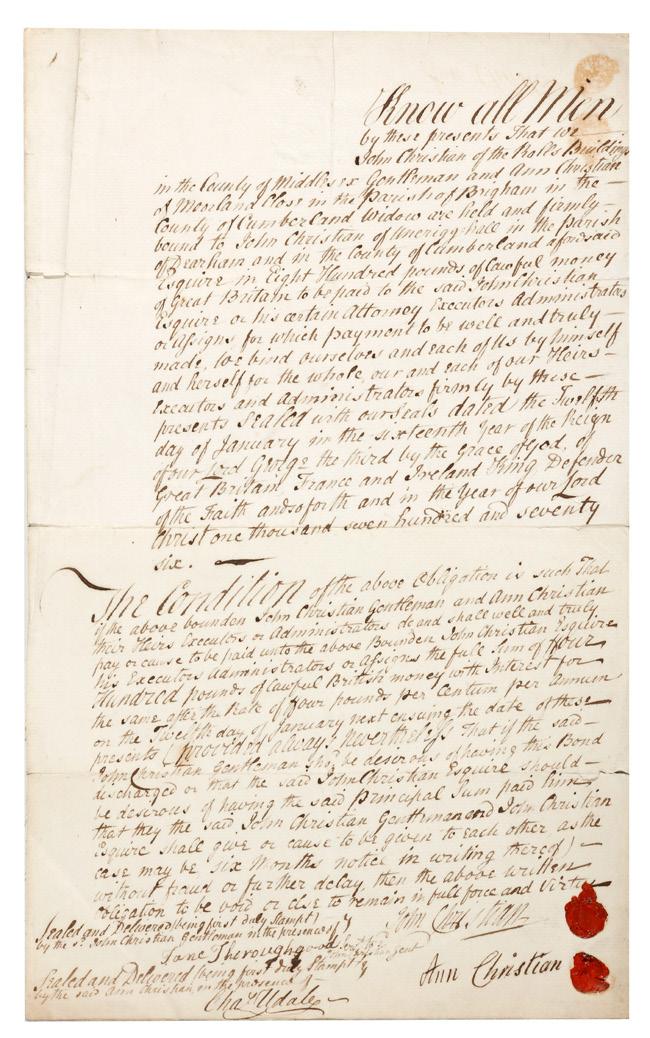 Know all Men
by these presents That we
John Christian of the Rolls Buildings
in the County of Middlesex Gentleman and Ann Christian
of Moorland Close in the Parish of Brigham in the
County of Cumberland Widow are held and firmly
bound to John Christian of Unerigg Hall in the Parish
of Dearham and in the County of Cumberland aforesaid
Esquire in Eight Hundred pounds of lawful money
of Great Britain to be paid to the said John Christian
Esquire or his certain Attorney Executors Administrators
or Assigns for which payment to be well and truly
made, We bind ourselves and each of Us by himself
and herself for the whole our and each of our Heirs
Executors and Administrators firmly by these
presents Sealed with our Seals dated the Twelfth
day of January in the sixteenth Year of the Reign
of our Lord George the third by the Grace of God, of
Great Britain France and Ireland King Defender
of the Faith and so forth and in the Year of our Lord
Christ one thousand seven hundred and seventy
six.
The Condition of the above Obligation is such That
if the above bounden John Christian Gentleman and Ann Christian
their Heirs Executors or Administrators do and shall well and truly
pay or cause to be paid unto the above Bounden John Christian Esquire
his Executors Administrators or Assigns the full Sum of ffour
Hundred pounds of lawful British money with Interest for
the same after the Rate of ffour pounds per Centum per Annum
on the Twelfth day of January next ensuing the date of these
presents (provided always nevertheless That if the said
John Christian Gentleman be desirous of having this Bond
discharged or that the said John Christian Esquire should
be desirous of having the said Principal Sum paid him
that they the said John Christian Gentleman and John Christian
Esquire shall give or cause to be given to each other as the
case may be six Months notice in writing thereof)
without fraud or further delay, then the above written
Obligation to be void or else to remain in full force and virtue
Sealed and Delivered (being first duly Stampt)
by the sd. John Christian Gentleman in the presence of
John Christian
Jane Thoroughgood
Sealed and Delivered (being first duly Stampt)
by the said Ann Christian in the presence of
Ann Christian
Chas Udale